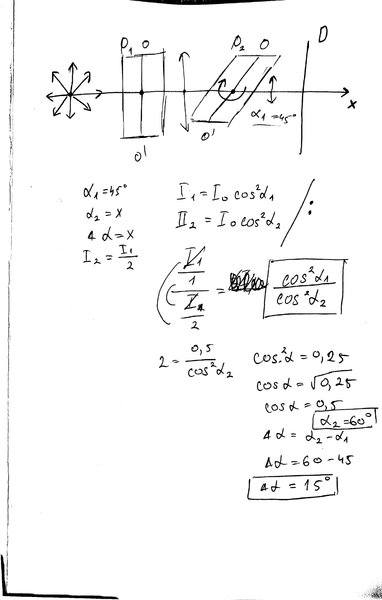 P₁ O P₂ O D
α₁=45° x
O' O'
α₁=45°
α₂=x
Δα=x
I₂=I₁/2
I₁=I₀ cos²α₁
II₂=I₀cos²α₂
/:
(I₁/1)/(I₁/2) = cos²α₁/cos²α₂
2=0,5/cos²α₂
cos²α=0,25
cosα=√0,25
cosα=0,5
α₂=60°
Δα=α₂-α₁
Δα=60-45
Δα=15°